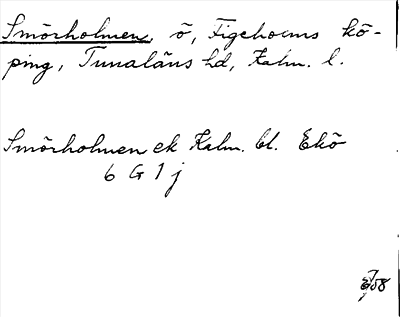 Smörholmen, ö, Figeholms kö-
ping, Tunaläns hd, Kalm. l.
Smörholmen ek Kalm. bl. Ekö
6 G 1 j